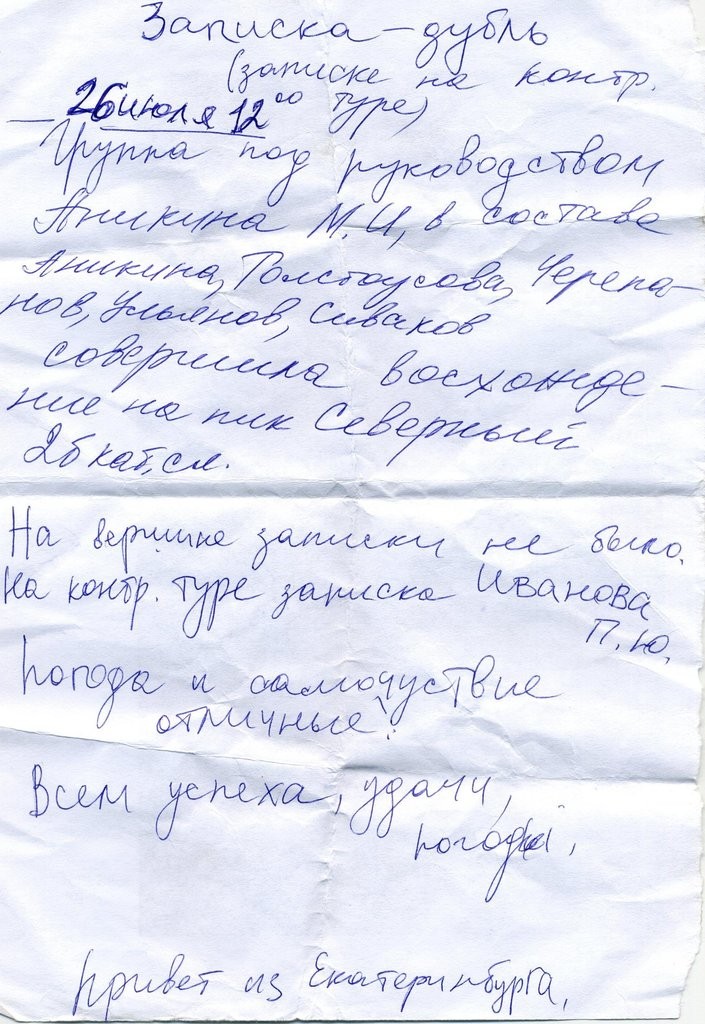 Записка – дубль
(записке на контр.
туре)
— 26 июля 12⁰⁰
Группа под руководством
Аникина М.И, в составе
Аникина, Толстоусова, Черепа-
нов, Ульянов, Сиваков
совершила восхожде-
ние на пик Северный
2б кат, сл.
На вершине записки не было.
На контр. туре записка Иванова
П.Ю.
Погода и самочуствие
отличные!
Всем успеха, удачи,
погоды,
Привет из Екатеринбурга,